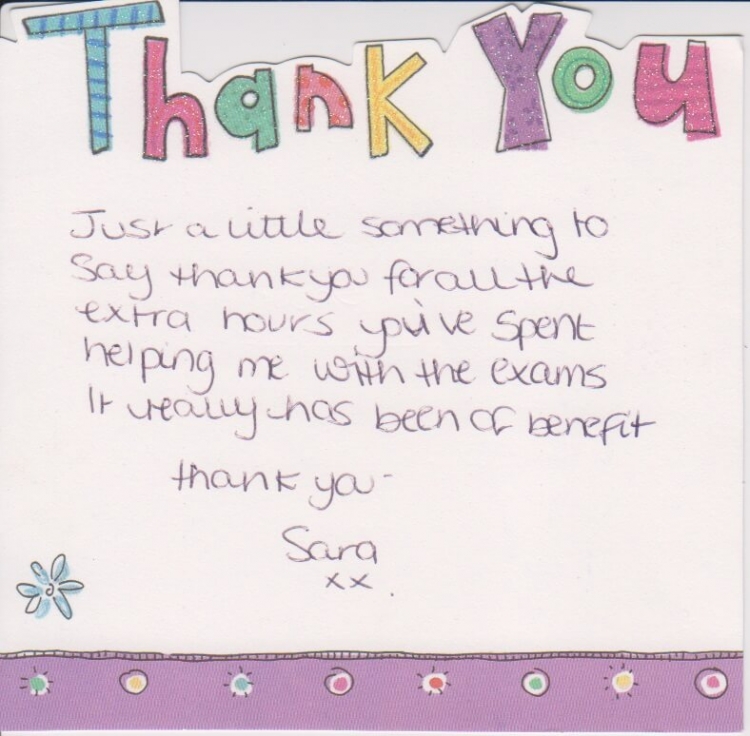 Thank You
Just a little something to
Say thank you for all the
extra hours you've spent
helping me with the exams
It really has been of benefit
thank you
Sara
xx.